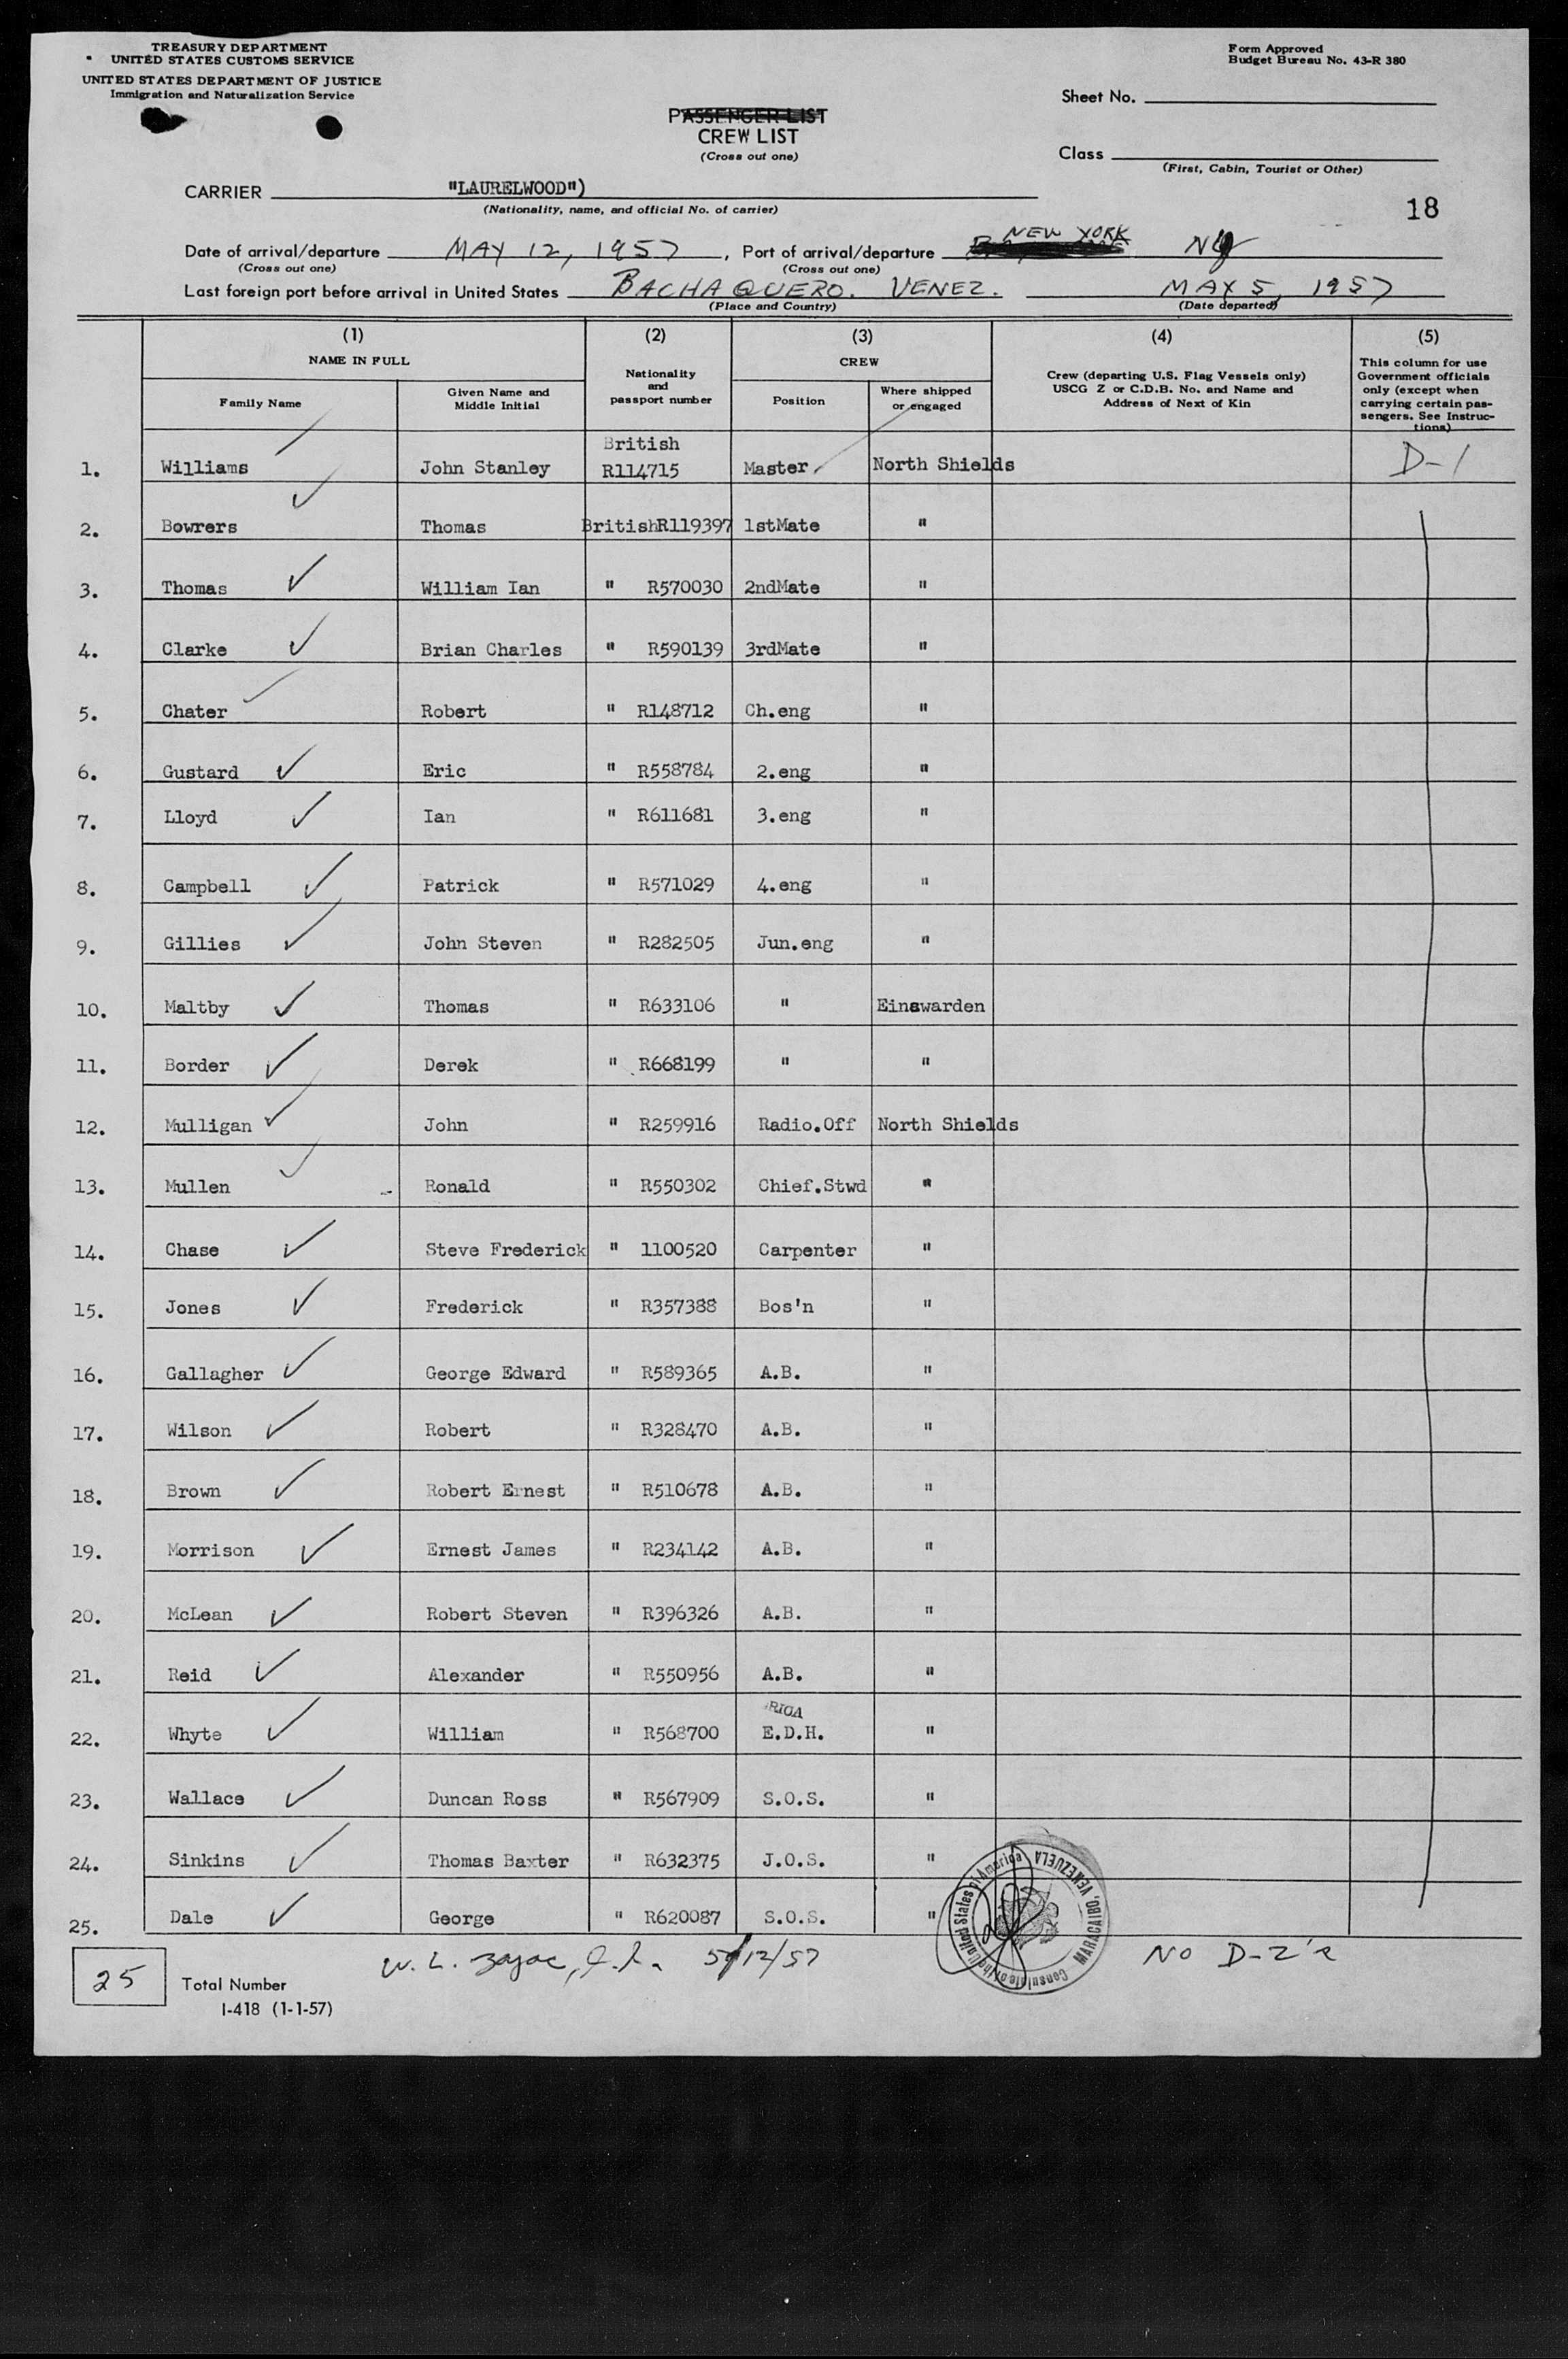 TREASURY DEPARTMENT
UNITED STATES CUSTOMS SERVICE
UNITED STATES DEPARTMENT OF JUSTICE
Immigration and Naturalization Service
Form Approved
Budget Bureau No. 43-R 380
Sheet No.
PASSENGER LIST
CREW LIST
(Cross out one)
Class
(First, Cabin, Tourist or Other)
CARRIER "LAURELWOOD")
(Nationality, name, and official No. of carrier)
18
Date of arrival/departure MAY 12, 1957, Port of arrival/departure NEW YORK NY
(Cross out one) (Cross out one)
Last foreign port before arrival in United States BACHAQUERO. VENEZ. MAY 5, 1957
(Place and Country) (Date departed)
(1) (2) (3) (4) (5)
NAME IN FULL
Nationality and passport number
CREW
Crew (departing U.S. Flag Vessels only)
USCG Z or C.D.B. No. and Name and
Address of Next of Kin
This column for use
Government officials
only (except when
carrying certain pas-
sengers. See Instruc-
tions)
Family Name Given Name and Middle Initial Position Where shipped or engaged
1. Williams John Stanley British R114715 Master North Shields D-1
2. Bowrers Thomas BritishR119397 1stMate "
3. Thomas William Ian " R570030 2ndMate "
4. Clarke Brian Charles " R590139 3rdMate "
5. Chater Robert " R148712 Ch.eng "
6. Gustard Eric " R558784 2.eng "
7. Lloyd Ian " R611681 3.eng "
8. Campbell Patrick " R571029 4.eng "
9. Gillies John Steven " R282505 Jun.eng "
10. Maltby Thomas " R633106 " Einswarden
11. Border Derek " R668199 " "
12. Mulligan John " R259916 Radio.Off North Shields
13. Mullen Ronald " R550302 Chief.Stwd "
14. Chase Steve Frederick " 1100520 Carpenter "
15. Jones Frederick " R357388 Bos'n "
16. Gallagher George Edward " R589365 A.B. "
17. Wilson Robert " R328470 A.B. "
18. Brown Robert Ernest " R510678 A.B. "
19. Morrison Ernest James " R234142 A.B. "
20. McLean Robert Steven " R396326 A.B. "
21. Reid Alexander " R550956 A.B. "
RIGA
22. Whyte William " R568700 E.D.H. "
23. Wallace Duncan Ross " R567909 S.O.S. "
24. Sinkins Thomas Baxter " R632375 J.O.S. "
25. Dale George " R620087 S.O.S. "
Consulate of the United States of America MARACAIBO, VENEZUELA
25 Total Number
W. L. Zajac, 5/12/57
NO D-2's
I-418 (1-1-57)